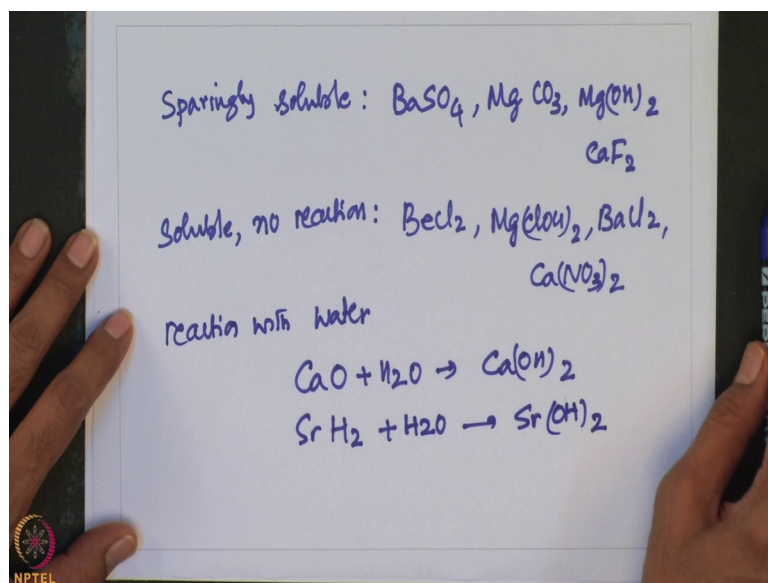 Sparingly soluble: BaSO4, MgCO3, Mg(OH)2
CaF2
Soluble, no reaction: BeCl2, Mg(ClO4)2, BaCl2,
Ca(NO3)2
reaction with water
CaO + H2O → Ca(OH)2
SrH2 + H2O → Sr(OH)2
NPTEL